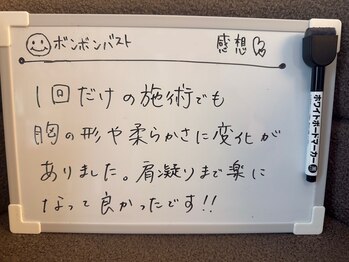 ボンボンバスト 感想
1回だけの施術でも
胸の形や柔らかさに変化が
ありました。肩凝りまで楽に
なって良かったです!!
ホワイトボードマーカー